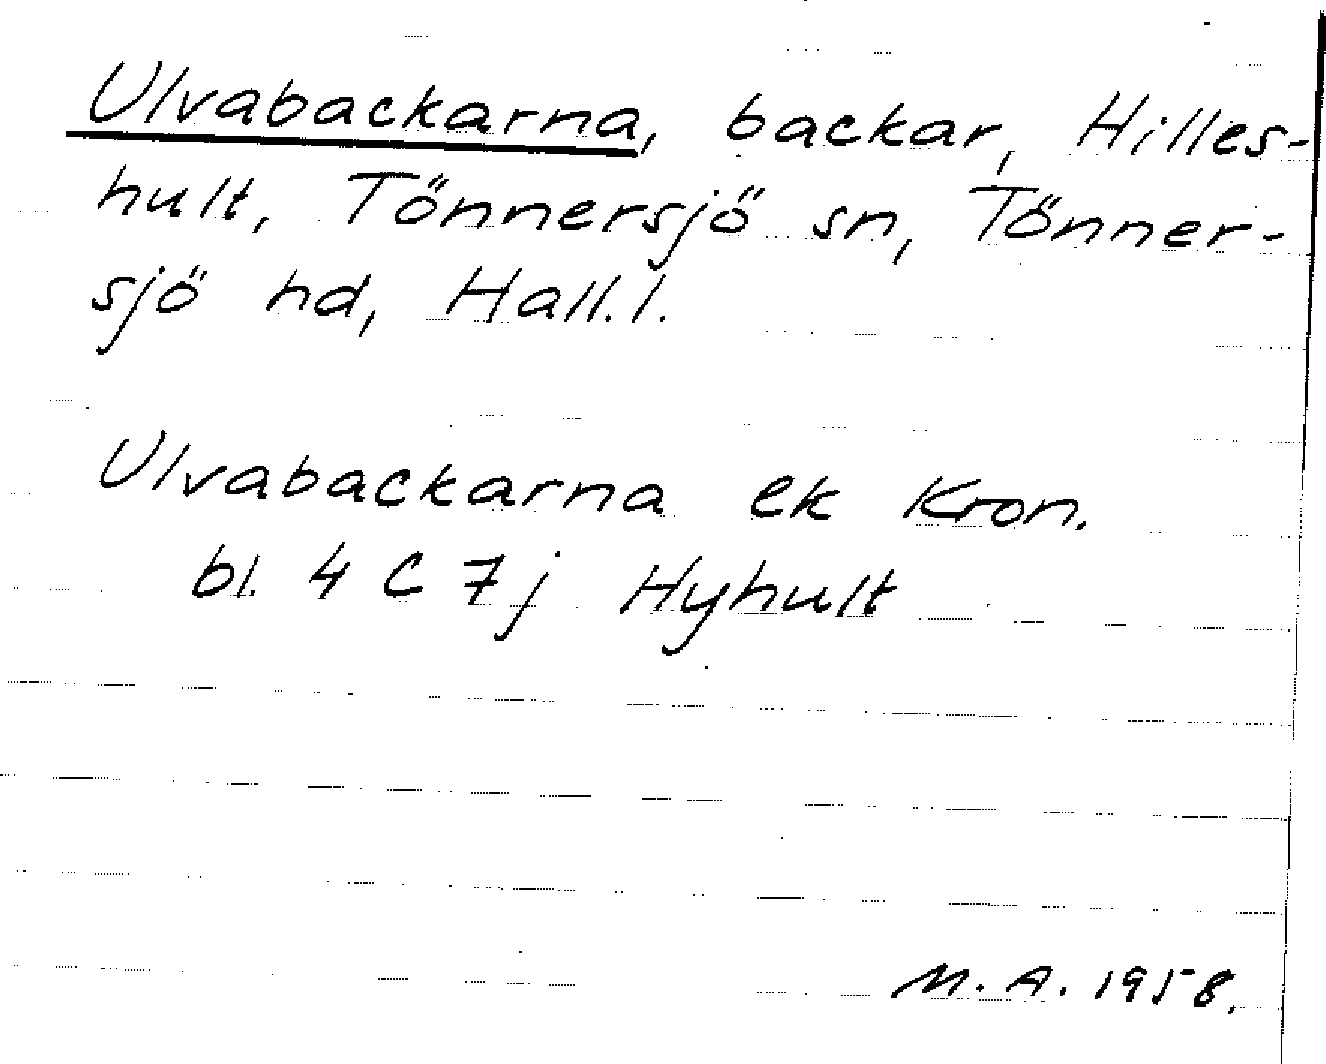 Ulvabackarna, backar, Hilles-
hult, Tönnersjö sn, Tönner-
sjö hd, Hall.l.
Ulvabackarna ek Kron.
bl. 4 C 7j Hyhult
M.A. 1958.